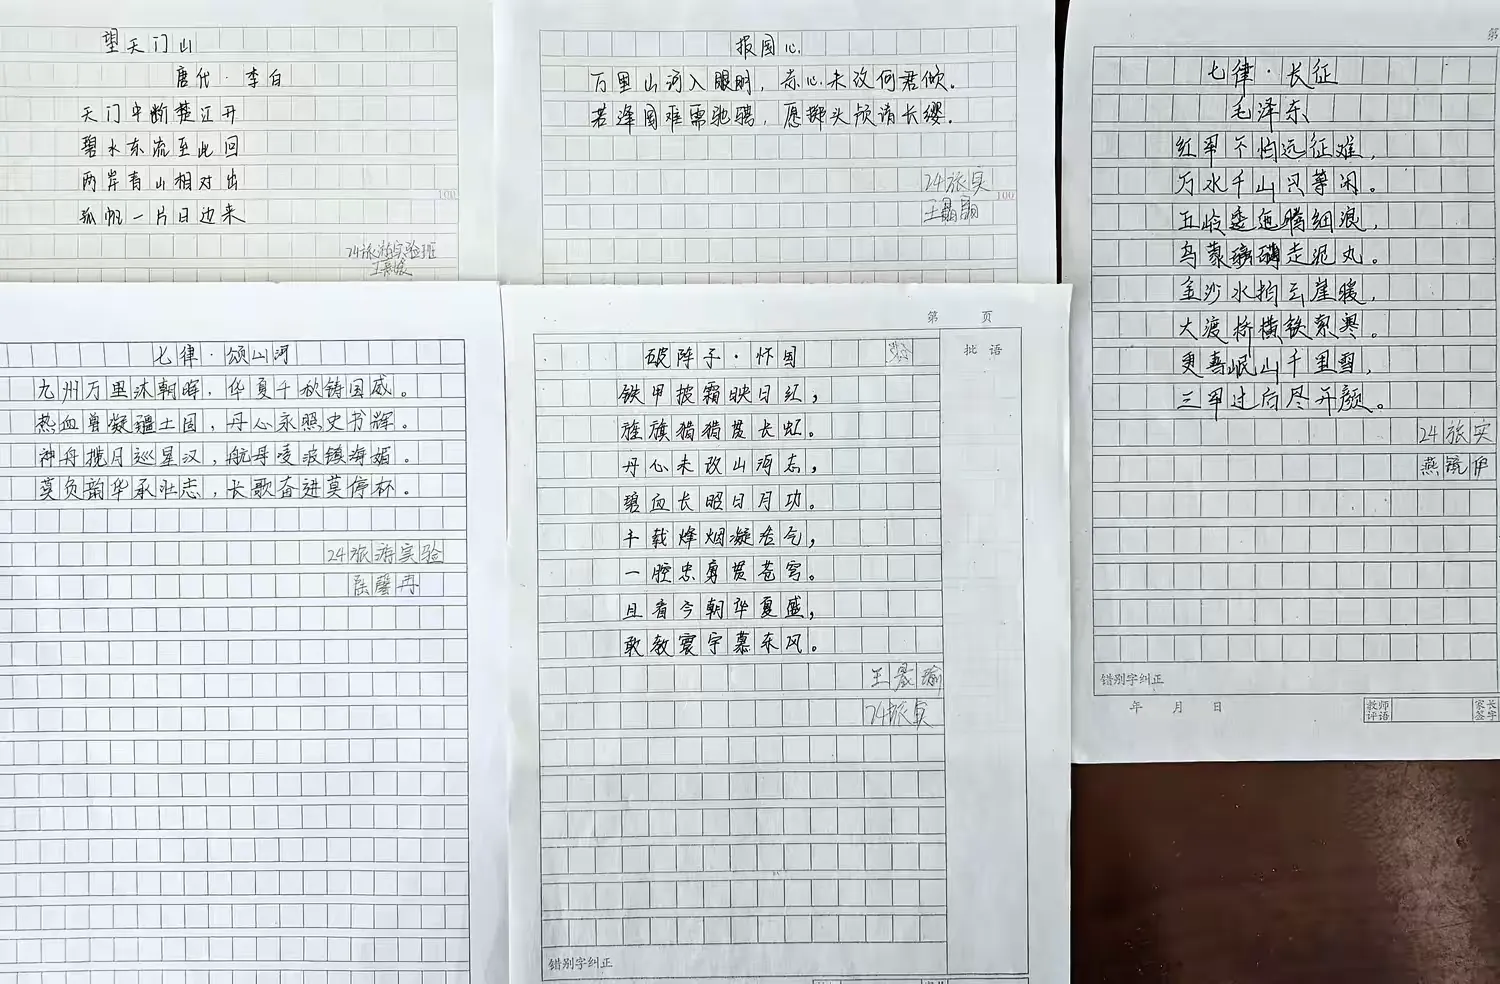 望天门山
唐代·李白
天门中断楚江开
碧水东流至此回
两岸青山相对出
孤帆一片日边来
100
24旅游实验班
报国心.
万里山河入眼明，赤心未改何君倾。
若逢国难需驰骋，愿掷头颅请长缨.
24旅实
100
第
七律·长征
毛泽东
红军不怕远征难，
万水千山只等闲。
五岭逶迤腾细浪，
乌蒙磅礴走泥丸。
金沙水拍云崖暖，
大渡桥横铁索寒。
更喜岷山千里雪，
三军过后尽开颜。
24旅实
错别字纠正
年 月 日
教师评语
家长签字
七律·颂山河
九州万里沐朝晖，华夏千秋铸国威。
热血曾凝疆土固，丹心永照史书辉。
神舟揽月巡星汉，航母凌波镇海媚。
莫负韵华承壮志，长歌奋进莫停杯。
24旅游实验
陆馨冉
第 页
批语
破阵子·怀国
铁甲披霜映日红，
旌旗猎猎贯长虹。
丹心未改山河志，
碧血长昭日月功。
千载烽烟凝浩气，
一腔忠勇贯苍穹。
且看今朝华夏盛，
敢教寰宇慕东风。
王晨瑜
24旅实
错别字纠正